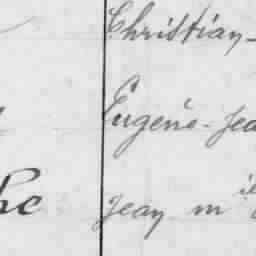 Christian-
Eugène-Jea
he
Jean m